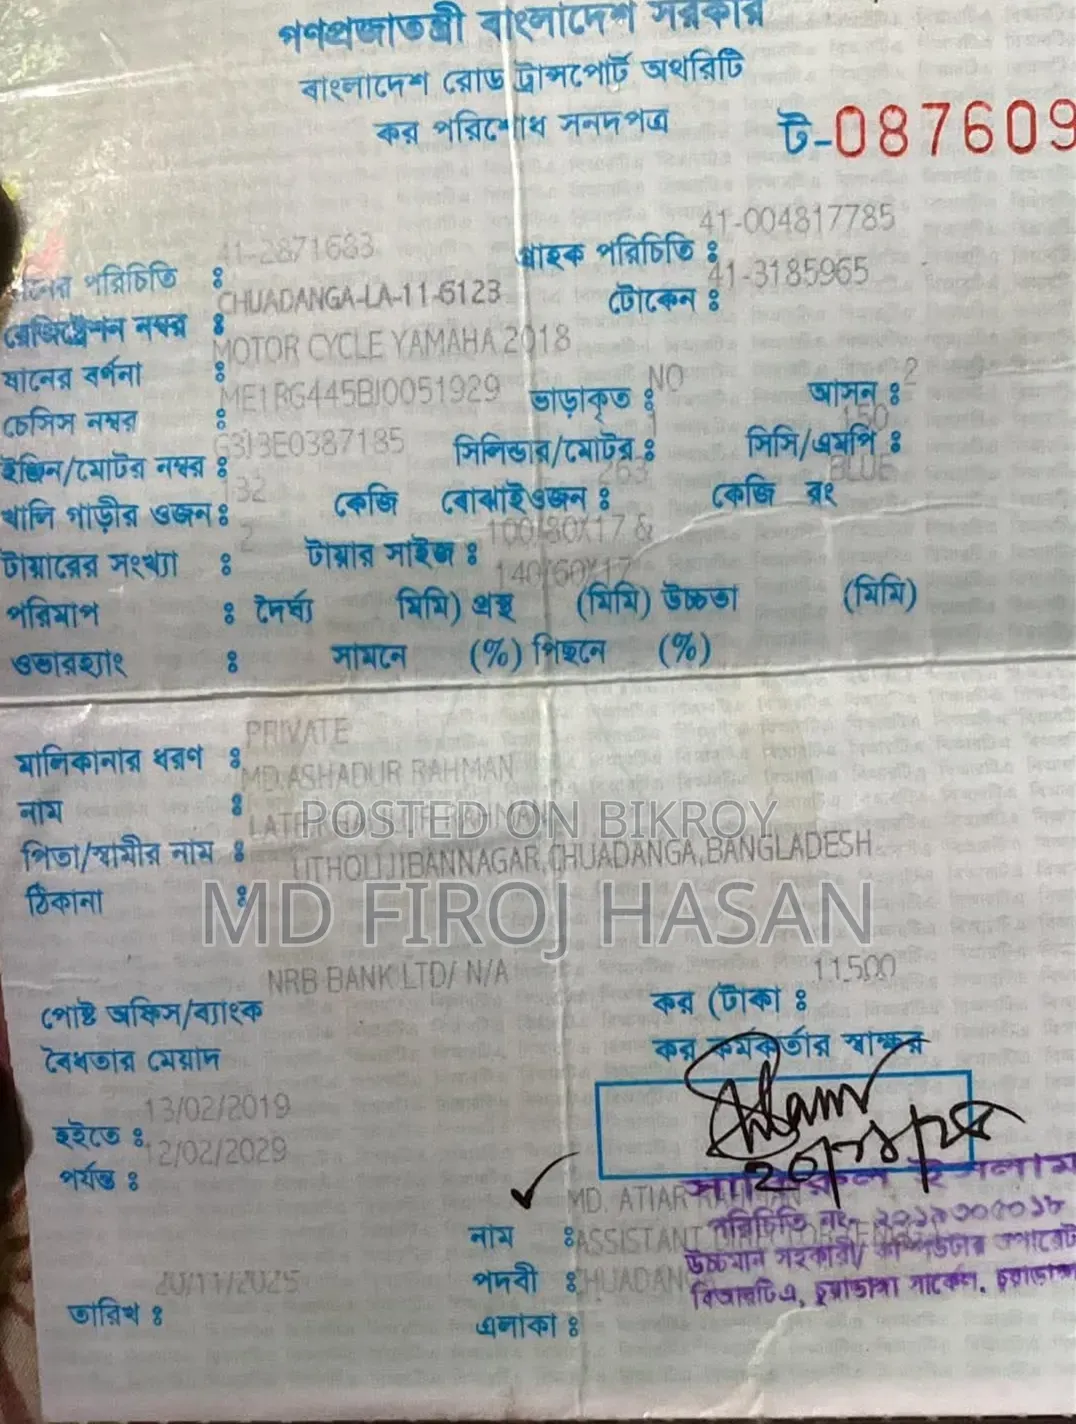 গণপ্রজাতন্ত্রী বাংলাদেশ সরকার
বাংলাদেশ রোড ট্রান্সপোর্ট অথরিটি
কর পরিশোধ সনদপত্র
ট-087609
41-2871683
গ্রাহক পরিচিতি : 41-004817785
পরিচিতি :
টোকেন : 41-3185965
রেজিস্ট্রেশন নম্বর : CHUADANGA-LA-11-6123
যানের বর্ণনা : MOTOR CYCLE YAMAHA 2018
চেসিস নম্বর : ME1RG445BJ0051929
ভাড়াকৃত : NO
আসন : 2
ইঞ্জিন/মোটর নম্বর : G3J3E0387185
সিলিন্ডার/মোটর : 1
সিসি/এমপি : 150
খালি গাড়ীর ওজন : 132 কেজি বোঝাইওজন : 263 কেজি রং BLUE
টায়ারের সংখ্যা : 2
টায়ার সাইজ : 100/80X17 &
140/60X17
পরিমাপ : দৈর্ঘ্য মিমি) প্রস্থ (মিমি) উচ্চতা (মিমি)
ওভারহ্যাং : সামনে (%) পিছনে (%)
মালিকানার ধরণ : PRIVATE
নাম : MD.ASHADUR RAHMAN
POSTED ON BIKROY
পিতা/স্বামীর নাম : RAHMAN
ঠিকানা : UTHOLI,JIBANNAGAR,CHUADANGA,BANGLADESH
MD FIROJ HASAN
পোষ্ট অফিস/ব্যাংক NRB BANK LTD/ N/A
কর (টাকা : 11500
বৈধতার মেয়াদ
কর কর্মকর্তার স্বাক্ষর
হইতে : 13/02/2019
পর্যন্ত : 12/02/2029
নাম : MD. ATIAR RAHMAN
পদবী : ASSISTANT
এলাকা : CHUADAN
তারিখ : 20/11/2025
ইসলাম
পরিচিতি নং-
উচ্চমান সহকারী/ কম্পিউটার অপারেট
বিআরটিএ, চুয়াডাঙ্গা সার্কেল, চুয়াডাঙ্গা